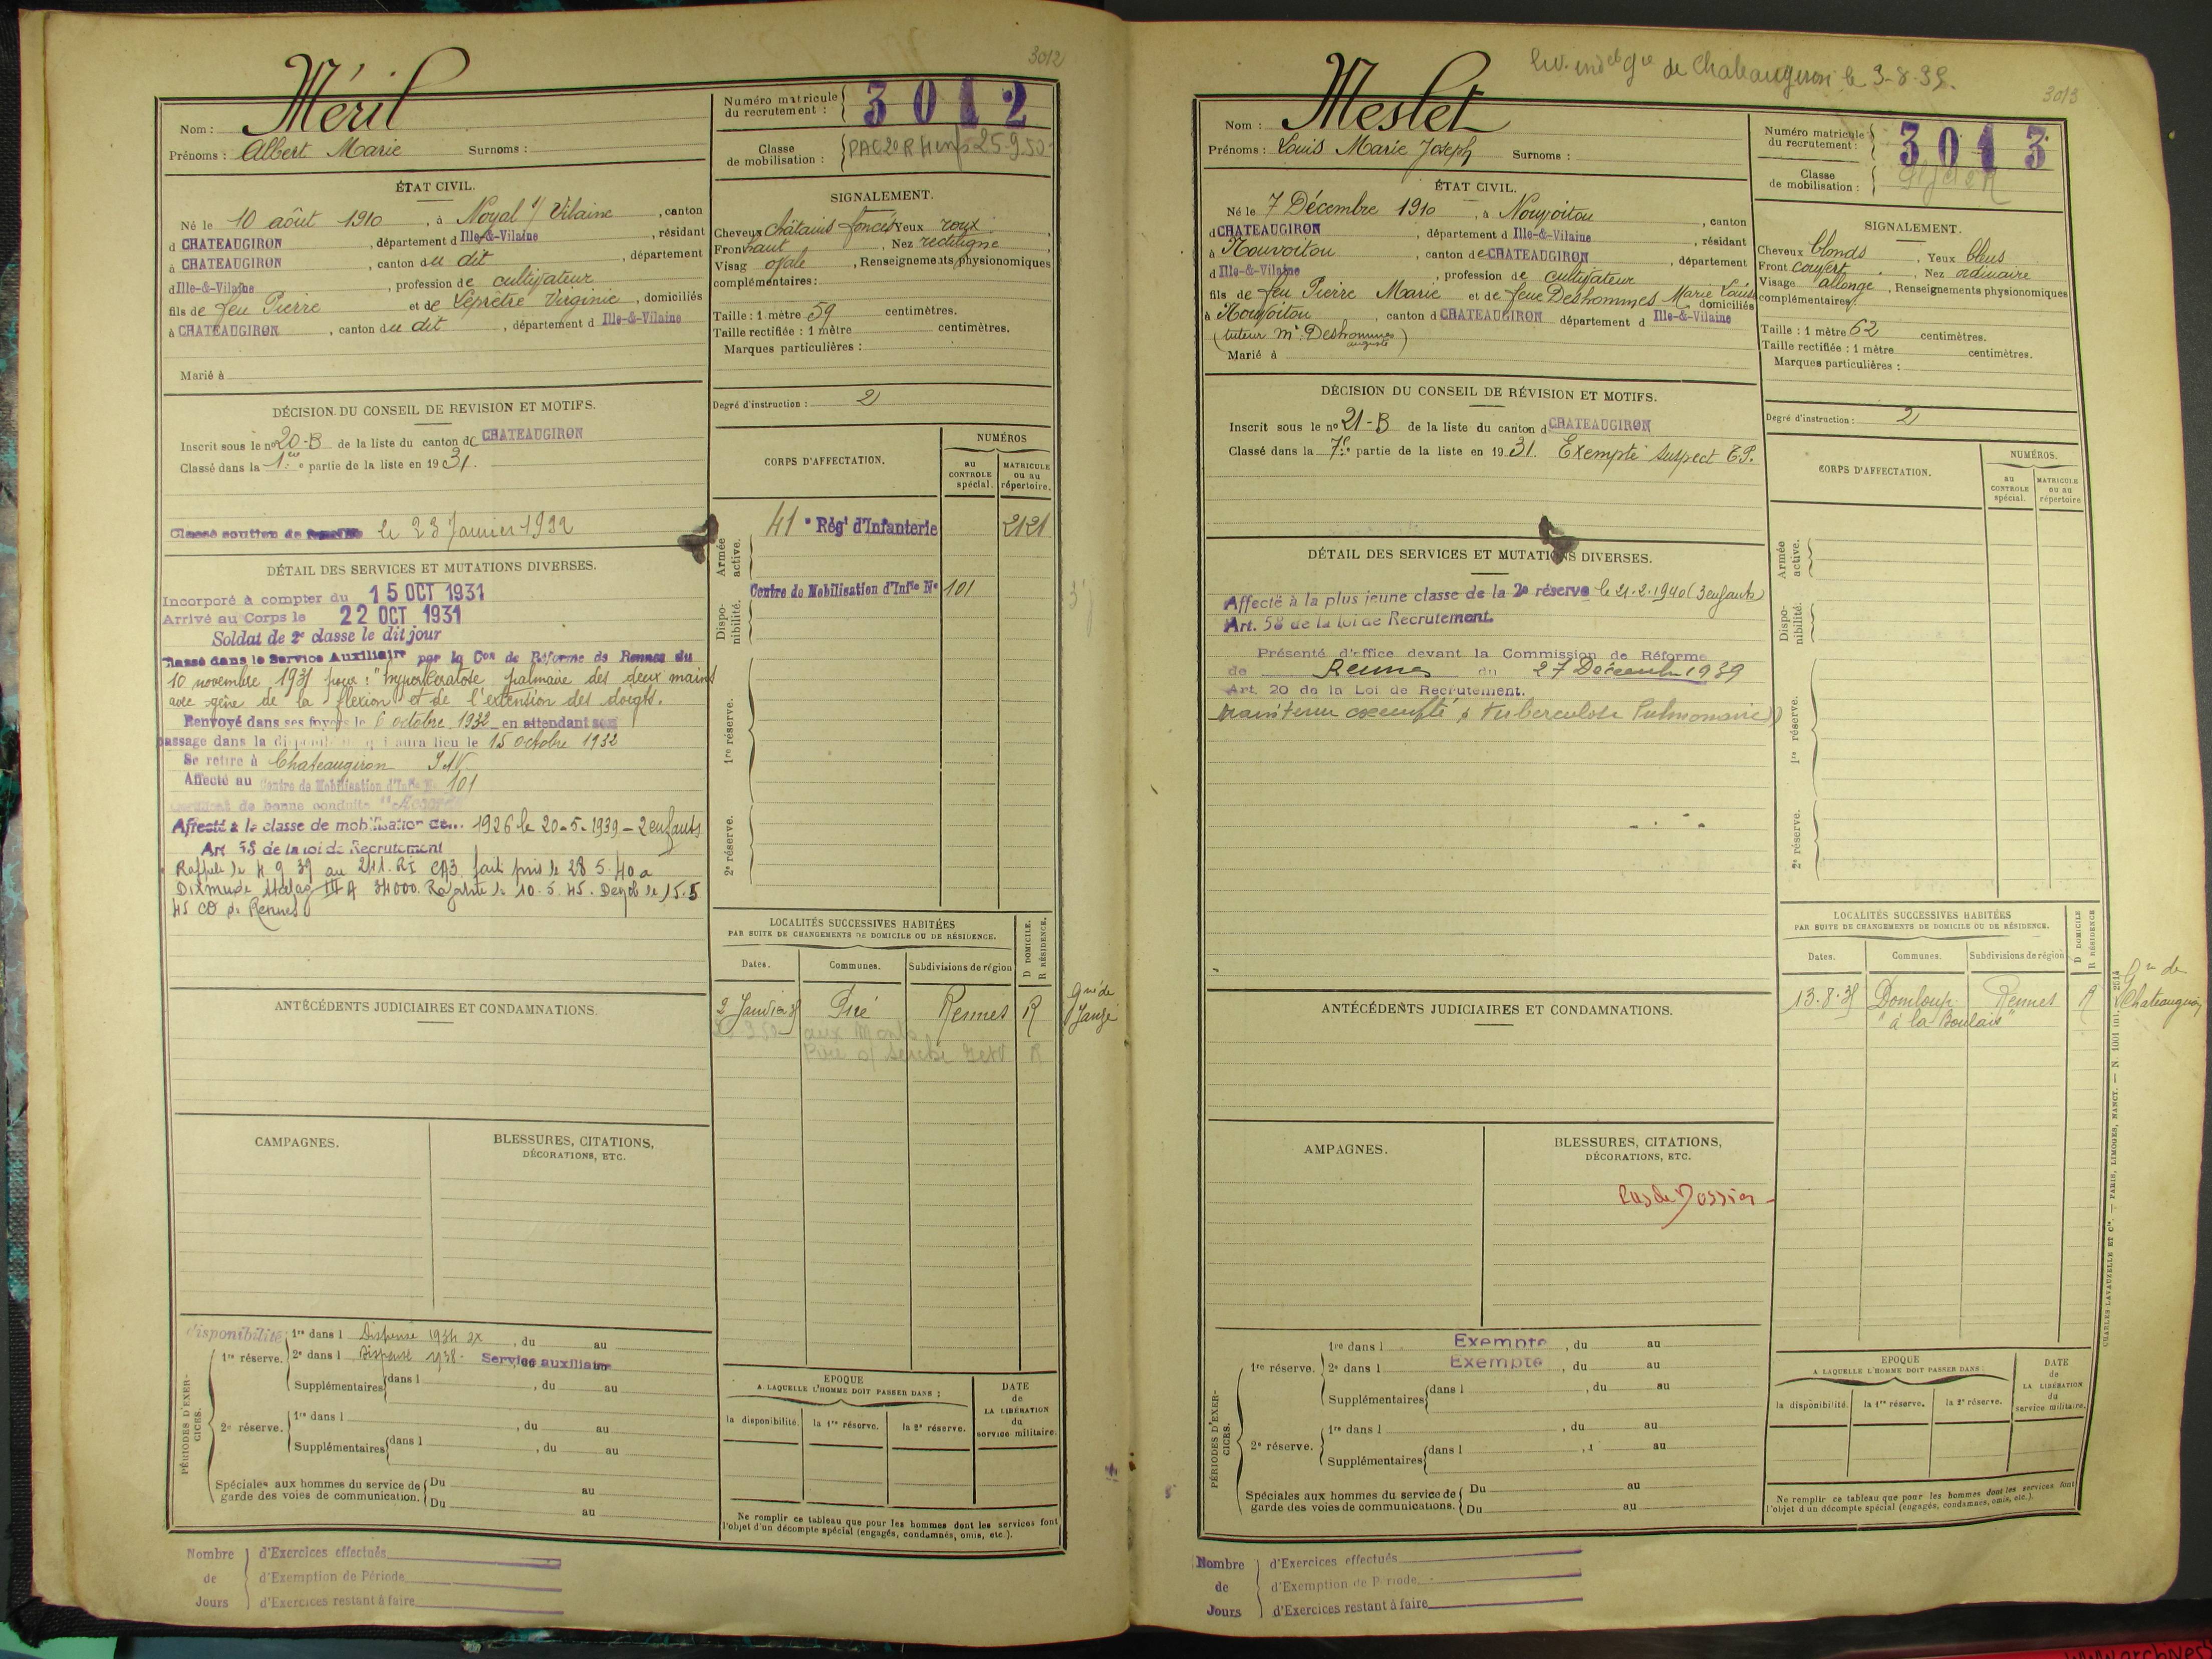 3012
Méril
Nom :
Prénoms : Albert Marie Surnoms :
Numéro matricule du recrutement : 3012
Classe de mobilisation :
ÉTAT CIVIL.
Né le 10 août 1910, à Noyal s/ Vilaine, canton
d CHATEAUGIRON, département d Ille-&-Vilaine, résidant
à CHATEAUGIRON, canton du dit, département
d Ille-&-Vilaine, profession de cultivateur
fils de feu Pierre et de Leprêtre Virginie, domiciliés
à CHATEAUGIRON, canton du dit, département d Ille-&-Vilaine
Marié à
SIGNALEMENT.
Cheveux châtains foncés Yeux roux
Front haut, Nez rectiligne
Visag ovale, Renseignements physionomiques
complémentaires :
Taille : 1 mètre 59 centimètres.
Taille rectifiée : 1 mètre centimètres.
Marques particulières :
Degré d'instruction : 2
DÉCISION DU CONSEIL DE REVISION ET MOTIFS.
Inscrit sous le no 20-B de la liste du canton de CHATEAUGIRON
Classé dans la 1re partie de la liste en 1931.
Classé soutien de famille le 23 Janvier 1932
CORPS D'AFFECTATION.
NUMÉROS
au CONTROLE spécial.
MATRICULE ou au répertoire.
Armée active.
41e Régt d'Infanterie 2121
Dispo-nibilité.
Centre de Mobilisation d'Infie No 101
1re réserve.
2e réserve.
DÉTAIL DES SERVICES ET MUTATIONS DIVERSES.
Incorporé à compter du 15 OCT 1931
Arrivé au Corps le 22 OCT 1931
Soldat de 2e classe le dit jour
Classé dans le Service Auxiliaire par la Con de Réforme de Rennes du
10 novembre 1931 pour : "hyperkératose palmaire des deux mains
avec gêne de la flexion et de l'extension des doigts.
Renvoyé dans ses foyers le 6 octobre 1932 en attendant son
passage dans la disponibilité qui aura lieu le 15 octobre 1932
Se retire à Chateaugiron I&V
Affecté au Centre de Mobilisation d'Infie No 101
Certificat de bonne conduite "Accordé"
Affecté à la classe de mobilisation de... 1926 le 20-5-1939 - 2 enfants
Art 58 de la loi de Recrutement
Rappelé le 4 9 39 au 241. RI CA3 fait pris le 28 5.40 a
Dixmude Stalag III A 34000. Rapatrié le 10.5.45. Degob le 15.5
45 CD de Rennes
LOCALITÉS SUCCESSIVES HABITÉES
PAR SUITE DE CHANGEMENTS DE DOMICILE OU DE RÉSIDENCE.
D DOMICILE.
R RÉSIDENCE.
Dates. Communes. Subdivisions de région
2 Janvier 35 Piré Rennes R
aux Monts
Gnie de Janzé
ANTÉCÉDENTS JUDICIAIRES ET CONDAMNATIONS.
CAMPAGNES.
BLESSURES, CITATIONS,
DÉCORATIONS, ETC.
PÉRIODES D'EXER-CICES.
disponibilité
1re réserve.
1re dans l Dispensé 1934 sx, du au
2e dans l Dispensé 1938 - Service auxiliaire
Supplémentaires dans l, du au
2e réserve.
1re dans l, du au
Supplémentaires dans l, du au
Spéciales aux hommes du service de garde des voies de communication.
Du au
Du au
EPOQUE
A LAQUELLE L'HOMME DOIT PASSER DANS :
la disponibilité. la 1re réserve. la 2e réserve.
DATE de LA LIBÉRATION du service militaire.
Ne remplir ce tableau que pour les hommes dont les services font
l'objet d'un décompte spécial (engagés, condamnés, omis, etc.).
Nombre de Jours
d'Exercices effectués
d'Exemption de Période
d'Exercices restant à faire
de Chateaugiron le 3-8-35.
3013
Meslet
Nom :
Prénoms : Louis Marie Joseph Surnoms :
Numéro matricule du recrutement : 3013
Classe de mobilisation :
ÉTAT CIVIL.
Né le 7 Décembre 1910, à Nouvoitou, canton
d CHATEAUGIRON, département d Ille-&-Vilaine, résidant
à Nouvoitou, canton de CHATEAUGIRON, département
d Ille-&-Vilaine, profession de cultivateur
fils de feu Pierre Marie et de feue Deshommes Marie Louise domiciliés
à Nouvoitou, canton d CHATEAUGIRON département d Ille-&-Vilaine
(tuteur Mr Deshommes auguste)
Marié à
SIGNALEMENT.
Cheveux blonds, Yeux bleus
Front couvert, Nez ordinaire
Visage allongé, Renseignements physionomiques
complémentaires :
Taille : 1 mètre 62 centimètres.
Taille rectifiée : 1 mètre centimètres.
Marques particulières :
Degré d'instruction : 2
DÉCISION DU CONSEIL DE RÉVISION ET MOTIFS.
Inscrit sous le no 21-B de la liste du canton d CHATEAUGIRON
Classé dans la 7e partie de la liste en 1931. Exempté suspect T.P.
CORPS D'AFFECTATION.
NUMÉROS.
au CONTROLE spécial.
MATRICULE ou au répertoire
Armée active.
Dispo-nibilité.
1re réserve.
2e réserve.
DÉTAIL DES SERVICES ET MUTATIONS DIVERSES.
Affecté à la plus jeune classe de la 2e réserve le 21.2.1940 (3 enfants)
Art. 58 de la loi de Recrutement.
Présenté d'office devant la Commission de Réforme
de Rennes du 27 Décembre 1939
Art. 20 de la Loi de Recrutement.
Maintenu exempté p Tuberculose Pulmonaire
LOCALITÉS SUCCESSIVES HABITÉES
PAR SUITE DE CHANGEMENTS DE DOMICILE OU DE RÉSIDENCE.
D DOMICILE
R RÉSIDENCE
Dates. Communes. Subdivisions de région
13.8.35 Domloup Rennes R
"à la Boulais"
Gie de Chateaugiron
ANTÉCÉDENTS JUDICIAIRES ET CONDAMNATIONS.
AMPAGNES.
BLESSURES, CITATIONS,
DÉCORATIONS, ETC.
Pas de Dossier
PÉRIODES D'EXER-CICES.
1re réserve.
1re dans l Exempte, du au
2e dans l Exempte, du au
Supplémentaires dans l, du au
2e réserve.
1re dans l, du au
Supplémentaires dans l au
Spéciales aux hommes du service de garde des voies de communications.
Du au
Du au
EPOQUE
A LAQUELLE L'HOMME DOIT PASSER DANS :
la disponibilité. la 1re réserve. la 2e réserve.
DATE de LA LIBÉRATION du service militaire.
Ne remplir ce tableau que pour les hommes dont les services font
l'objet d'un décompte spécial (engagés, condamnés, omis, etc.).
CHARLES-LAVAUZELLE ET Cie. — PARIS, LIMOGES, NANCY. — N. 1001 int. 2514
Nombre de Jours
d'Exercices effectués
d'Exemption de Période
d'Exercices restant à faire